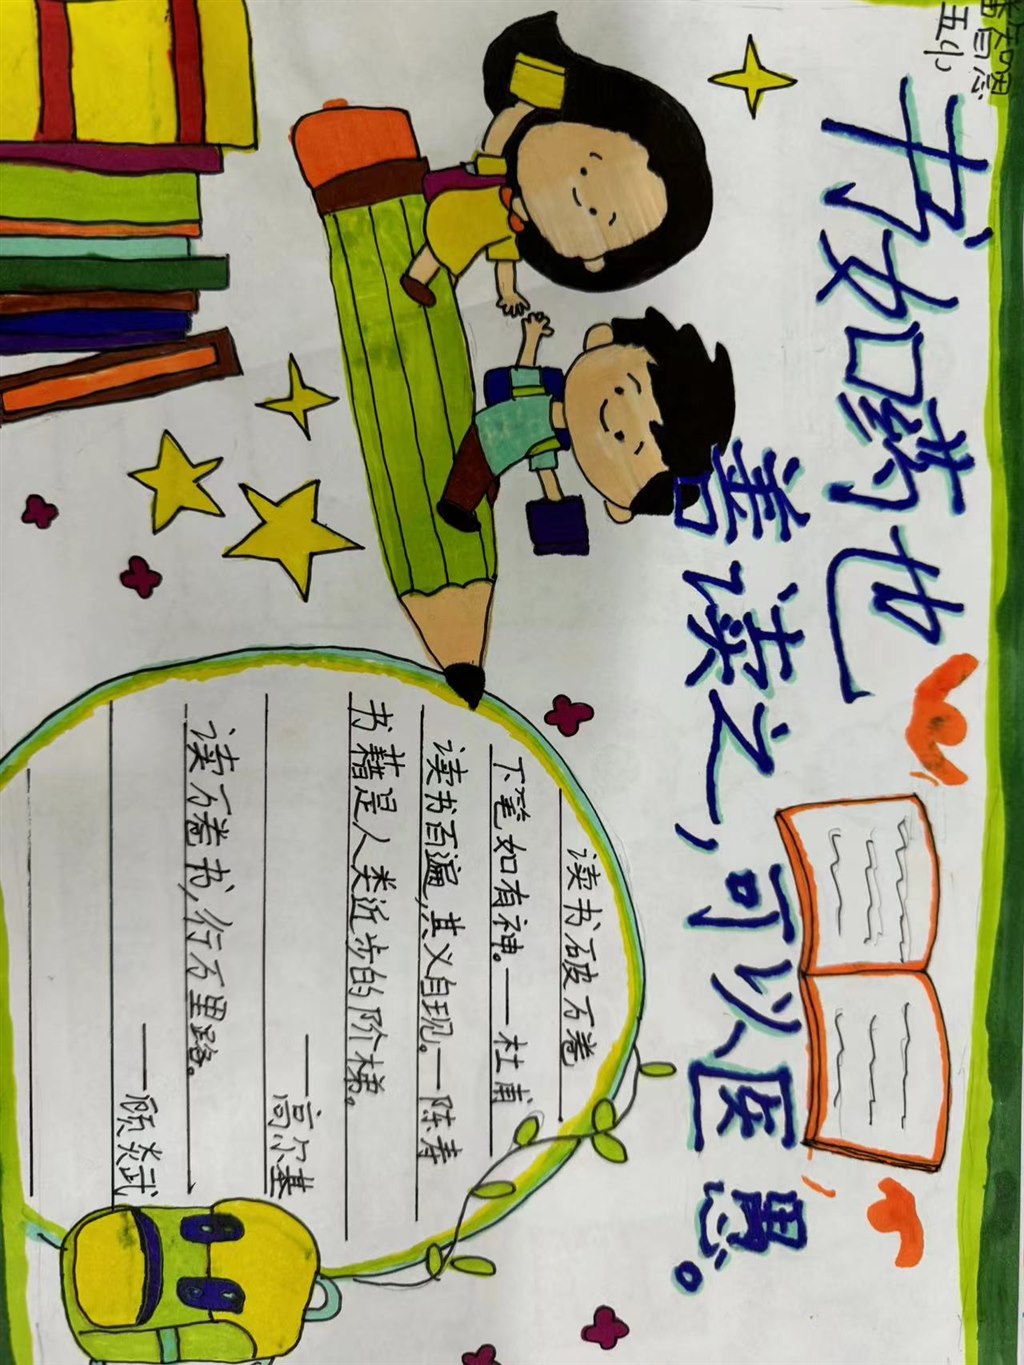 五小
书如药也
善读之，可以医愚。
读书破万卷
下笔如有神。——杜甫
读书百遍，其义自现。—陈寿
书籍是人类近步的阶梯。
——高尔基
读万卷书，行万里路。
——顾炎武